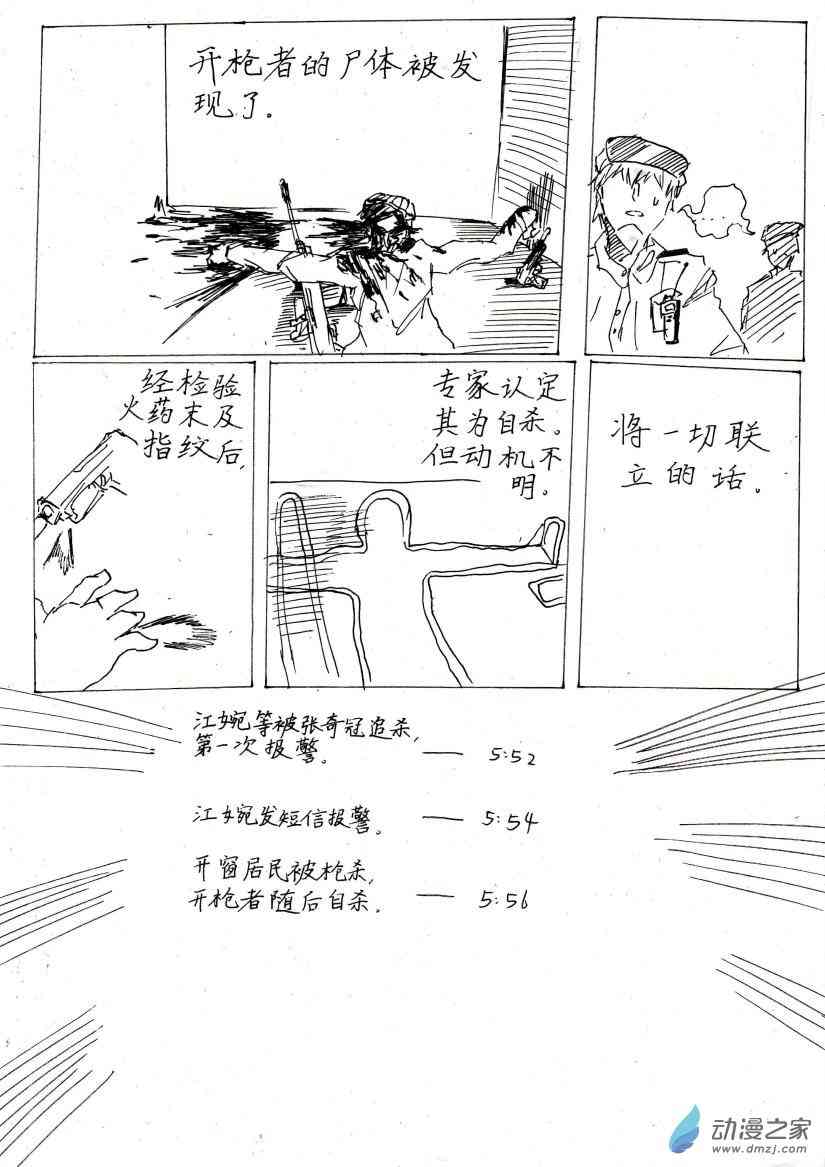 开枪者的尸体被发
现了.
……
经检验
火药末及
指纹后,
专家认定
其为自杀。
但动机不
明。
将一切联
立的话。
江婉等被张奇冠追杀,
第一次报警。 — 5:52
江婉发短信报警。 — 5:54
开窗居民被枪杀,
开枪者随后自杀. — 5:56
动漫之家
www.dmzj.com